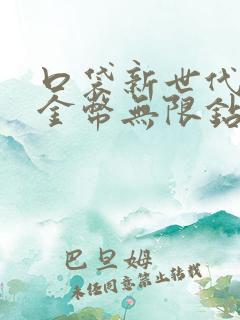 口袋新世代
金幣無限鉆
巴旦姆
未經同意禁止轉載